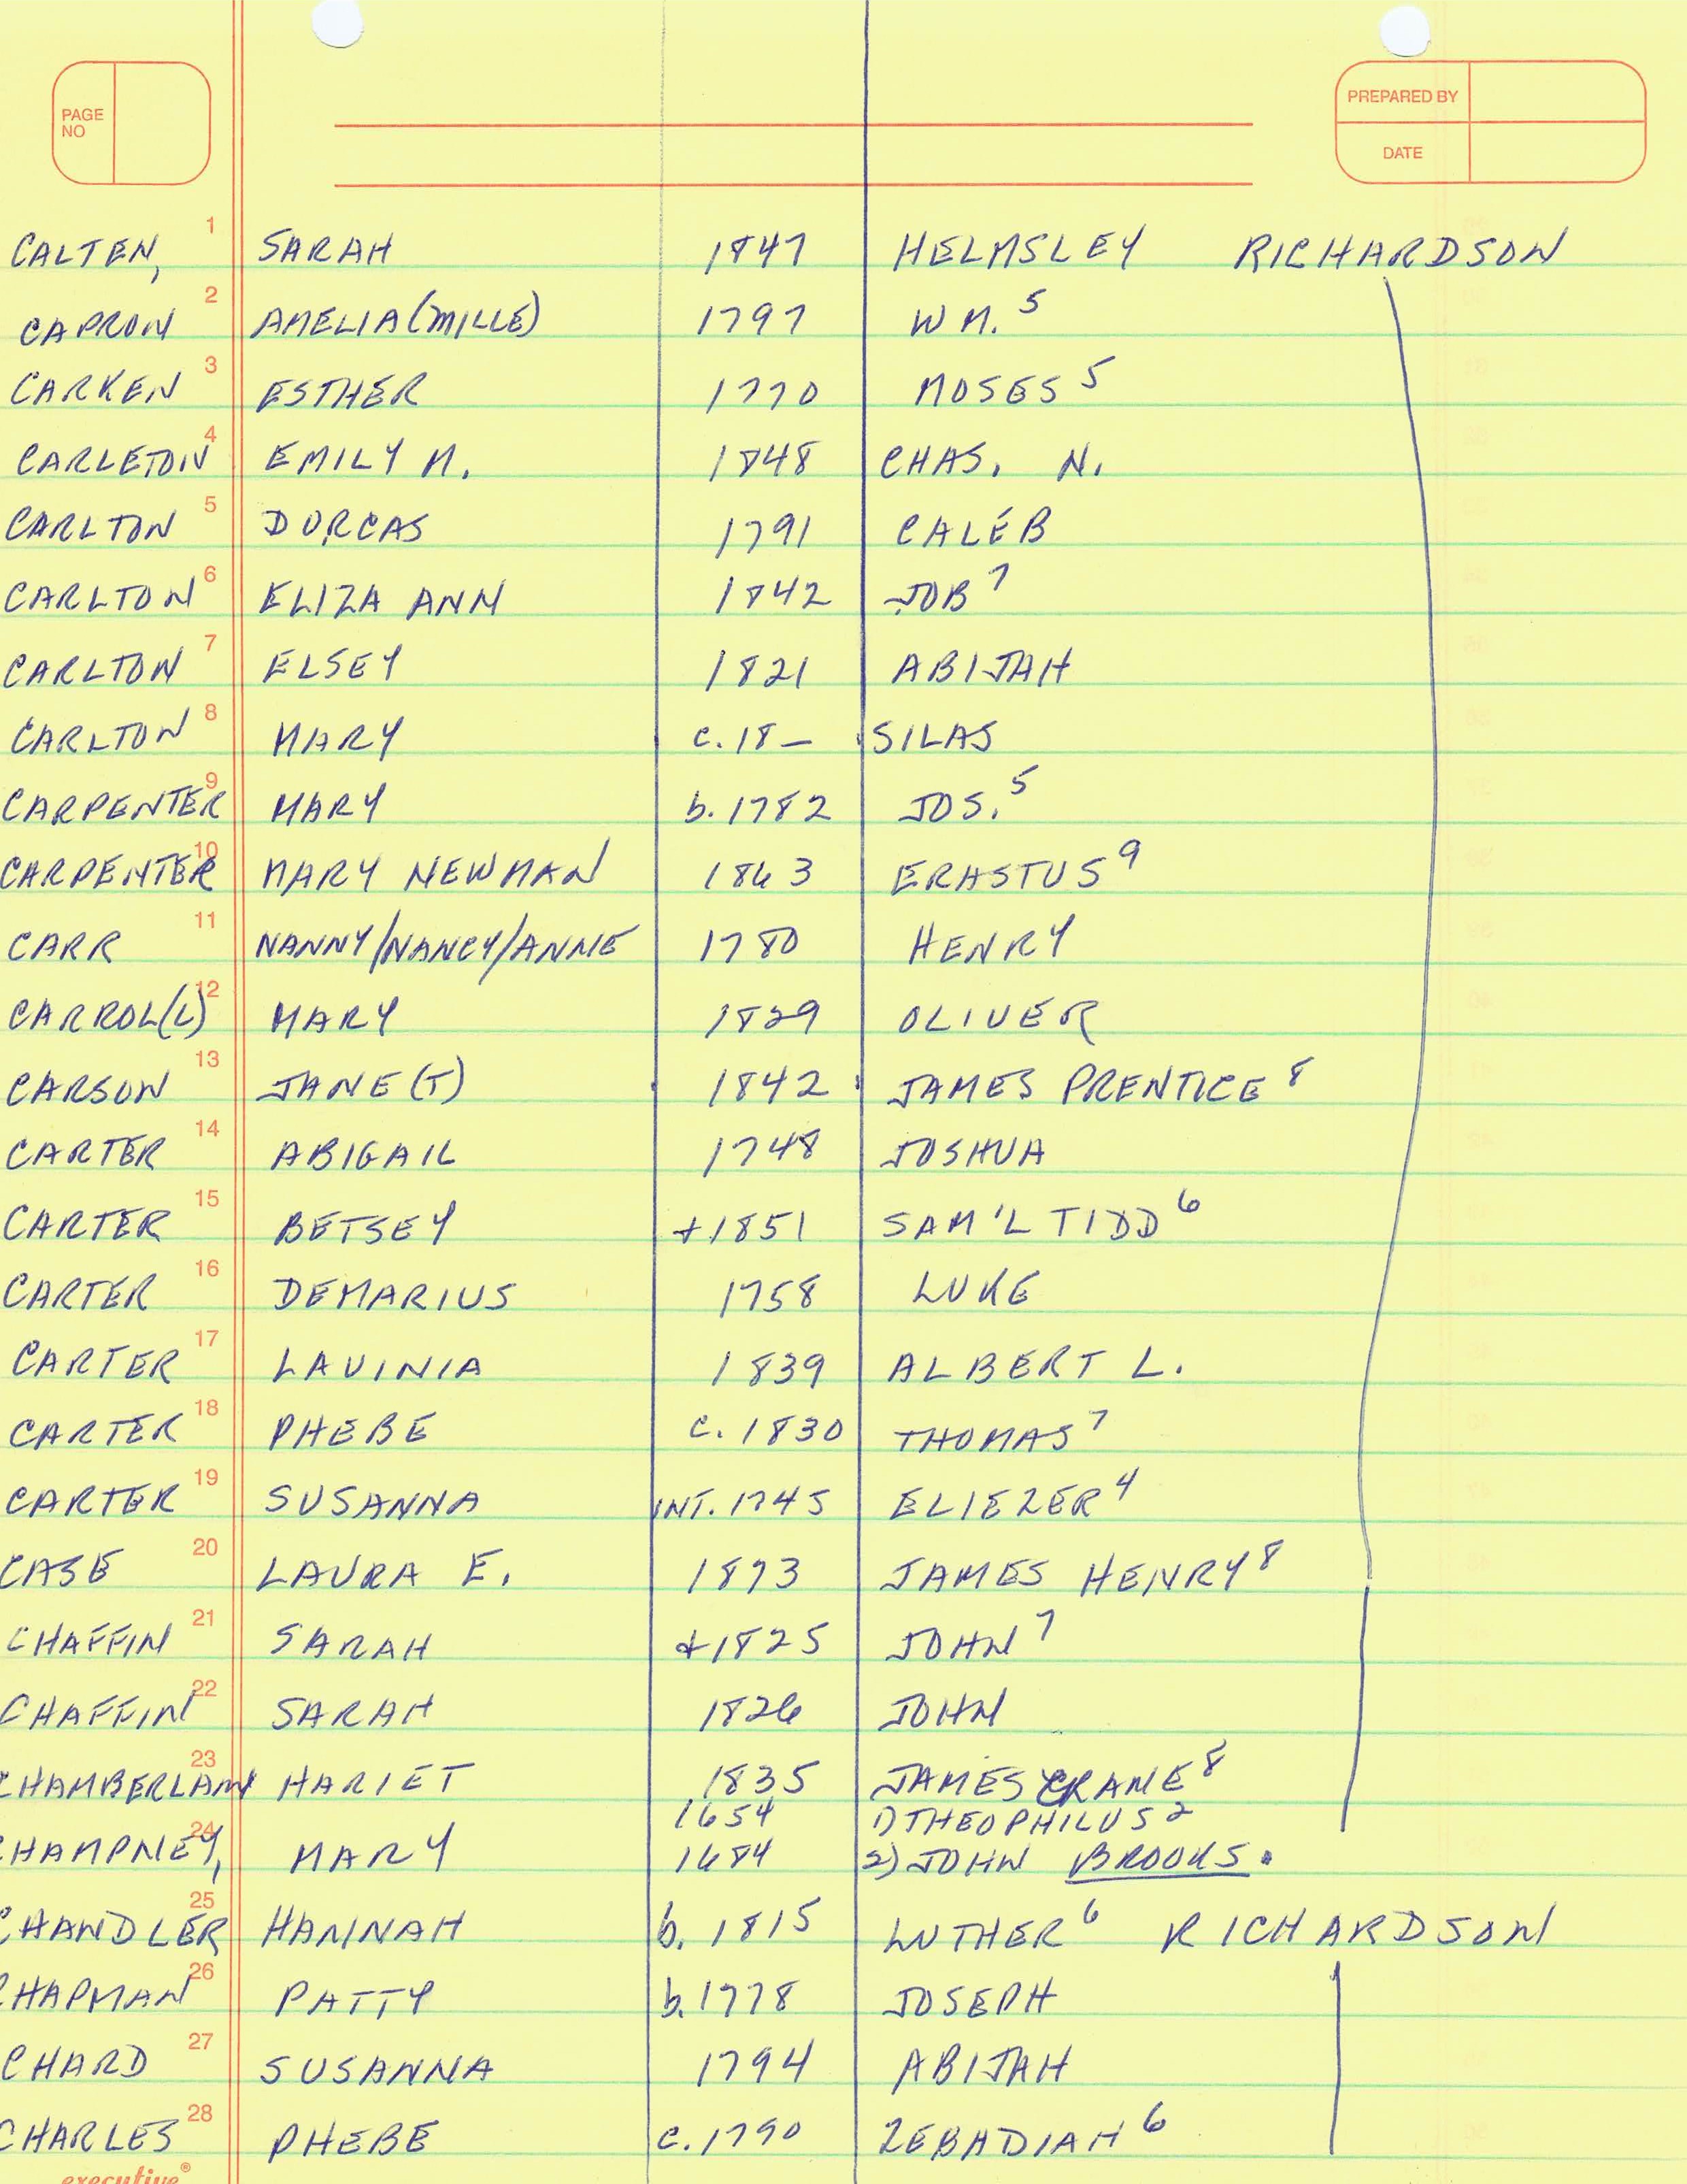 PAGE NO
PREPARED BY
DATE
1 CALTEN, SARAH 1847 HELMSLEY RICHARDSON
2 CAPRON AMELIA (MILLE) 1797 WM. 5
3 CARKEN ESTHER 1770 MOSES 5
4 CARLETON EMILY M. 1848 CHAS. N.
5 CARLTON DORCAS 1791 CALEB
6 CARLTON ELIZA ANN 1842 JOB 7
7 CARLTON ELSEY 1821 ABIJAH
8 CARLTON MARY c. 18– SILAS
9 CARPENTER MARY b. 1782 JOS. 5
10 CARPENTER MARY NEWMAN 1863 ERASTUS 9
11 CARR NANNY/NANCY/ANNIE 1780 HENRY
12 CARROL(L) MARY 1829 OLIVER
13 CARSON JANE (T) 1842 JAMES PRENTICE 8
14 CARTER ABIGAIL 1748 JOSHUA
15 CARTER BETSEY +1851 SAM'L TIDD 6
16 CARTER DEMARIUS 1758 LUKE
17 CARTER LAVINIA 1839 ALBERT L.
18 CARTER PHEBE c. 1830 THOMAS 7
19 CARTER SUSANNA INT. 1745 ELIEZER 4
20 CASE LAURA E. 1873 JAMES HENRY 8
21 CHAFFIN SARAH +1825 JOHN 7
22 CHAFFIN SARAH 1826 JOHN
23 CHAMBERLAIN HARIET 1835 JAMES CRANE 8
1654 1) THEOPHILUS 2
24 CHAMPNEY, MARY 1684 2) JOHN BROOKS.
25 CHANDLER HANNAH b. 1815 LUTHER 6 RICHARDSON
26 CHAPMAN PATTY b. 1778 JOSEPH
27 CHARD SUSANNA 1794 ABIJAH
28 CHARLES PHEBE c. 1790 ZEBADIAH 6
executive®